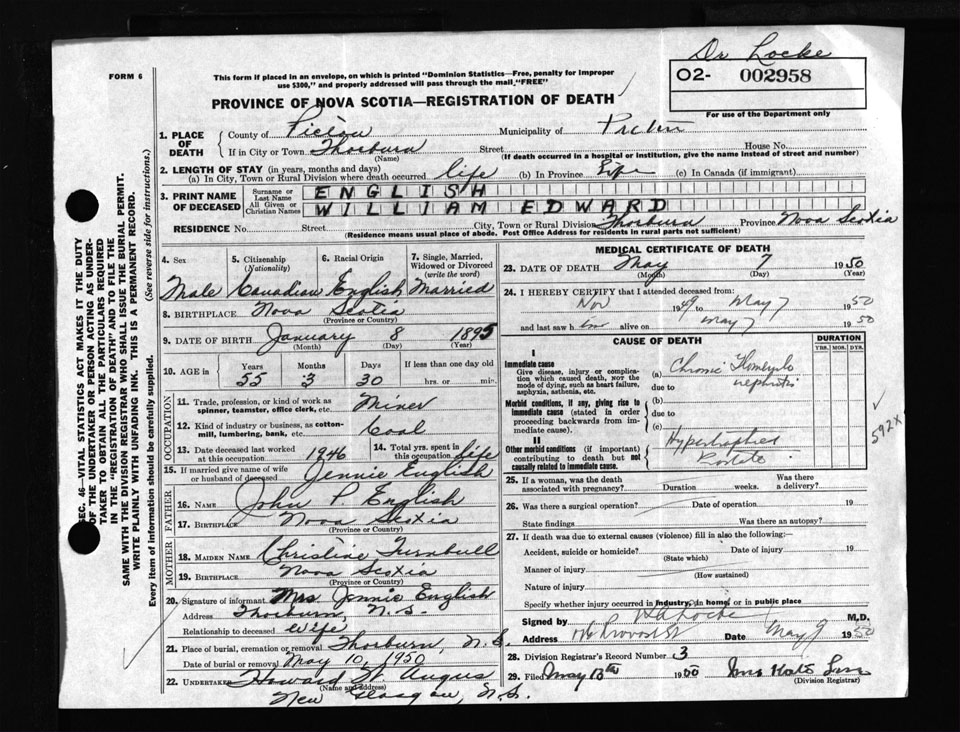 Dr Locke
FORM 6
This form if placed in an envelope, on which is printed "Dominion Statistics—Free, penalty for improper
use $300," and properly addressed will pass through the mail, "FREE"
O2- 002958
For use of the Department only
PROVINCE OF NOVA SCOTIA—REGISTRATION OF DEATH
1. PLACE OF DEATH County of Pictou Municipality of Pictou
If in City or Town Thorburn (Name) Street House No.
(If death occurred in a hospital or institution, give the name instead of street and number)
2. LENGTH OF STAY (in years, months and days)
(a) In City, Town or Rural Division where death occurred life (b) In Province Life (c) In Canada (if immigrant)
3. PRINT NAME OF DECEASED Surname or Last Name ENGLISH
All Given or Christian Names WILLIAM EDWARD
RESIDENCE No. Street City, Town or Rural Division Thorburn Province Nova Scotia
(Residence means usual place of abode. Post Office Address for residents in rural parts not sufficient)
4. Sex 5. Citizenship (Nationality) 6. Racial Origin 7. Single, Married, Widowed or Divorced (write the word)
Male Canadian English Married
8. BIRTHPLACE Nova Scotia
(Province or Country)
9. DATE OF BIRTH January 8 1895
(Month) (Day) (Year)
10. AGE in Years Months Days If less than one day old
55 3 30 hrs. or min.
OCCUPATION
11. Trade, profession, or kind of work as spinner, teamster, office clerk, etc. Miner
12. Kind of industry or business, as cotton-mill, lumbering, bank, etc. Coal
13. Date deceased last worked at this occupation 1946 14. Total yrs. spent in this occupation Life
15. If married give name of wife or husband of deceased Jennie English
FATHER
16. Name John P. English
17. Birthplace Nova Scotia
(Province or Country)
MOTHER
18. Maiden Name Christine Turnbull
19. Birthplace Nova Scotia
(Province or Country)
20. Signature of informant Mrs Jennie English
Address Thorburn, N.S.
Relationship to deceased wife
21. Place of burial, cremation or removal Thorburn, N.S.
Date of burial or removal May 10, 1950
22. Undertaker Howard W. Angus
(Name and address)
New Glasgow, N.S.
MEDICAL CERTIFICATE OF DEATH
23. DATE OF DEATH May 7 1950
(Month) (Day) (Year)
24. I HEREBY CERTIFY that I attended deceased from:
Nov 1949 to May 7 1950
and last saw him alive on May 7 1950
CAUSE OF DEATH DURATION
YRS. MOS. DYS.
I
Immediate cause
Give disease, injury or complication which caused death, not the mode of dying, such as heart failure, asphyxia, asthenia, etc.
(a) Chronic
nephritis
due to
Morbid conditions, if any, giving rise to immediate cause (stated in order proceeding backwards from immediate cause).
(b)
due to
(c)
II
Other morbid conditions (if important) contributing to death but not causally related to immediate cause.
Hypertrophied
Prostate
592X
25. If a woman, was the death associated with pregnancy? Duration weeks. Was there a delivery?
26. Was there a surgical operation? Date of operation 19
State findings Was there an autopsy?
27. If death was due to external causes (violence) fill in also the following:—
Accident, suicide or homicide? Date of injury 19
(State which)
Manner of injury
(How sustained)
Nature of injury
Specify whether injury occurred in industry, in home, or in public place
Signed by Locke M.D.
Address Provost St Date May 9 1950
28. Division Registrar's Record Number 3
29. Filed May 1950
(Division Registrar)
SEC. 46—VITAL STATISTICS ACT MAKES IT THE DUTY
OF THE UNDERTAKER OR PERSON ACTING AS UNDERTAKER
TO OBTAIN ALL THE PARTICULARS REQUIRED
IN THE "REGISTRATION OF DEATH" AND TO FILE THE
SAME WITH THE DIVISION REGISTRAR WHO SHALL ISSUE THE BURIAL PERMIT.
WRITE PLAINLY WITH UNFADING INK. THIS IS A PERMANENT RECORD.
Every item of information should be carefully supplied. (See reverse side for instructions.)